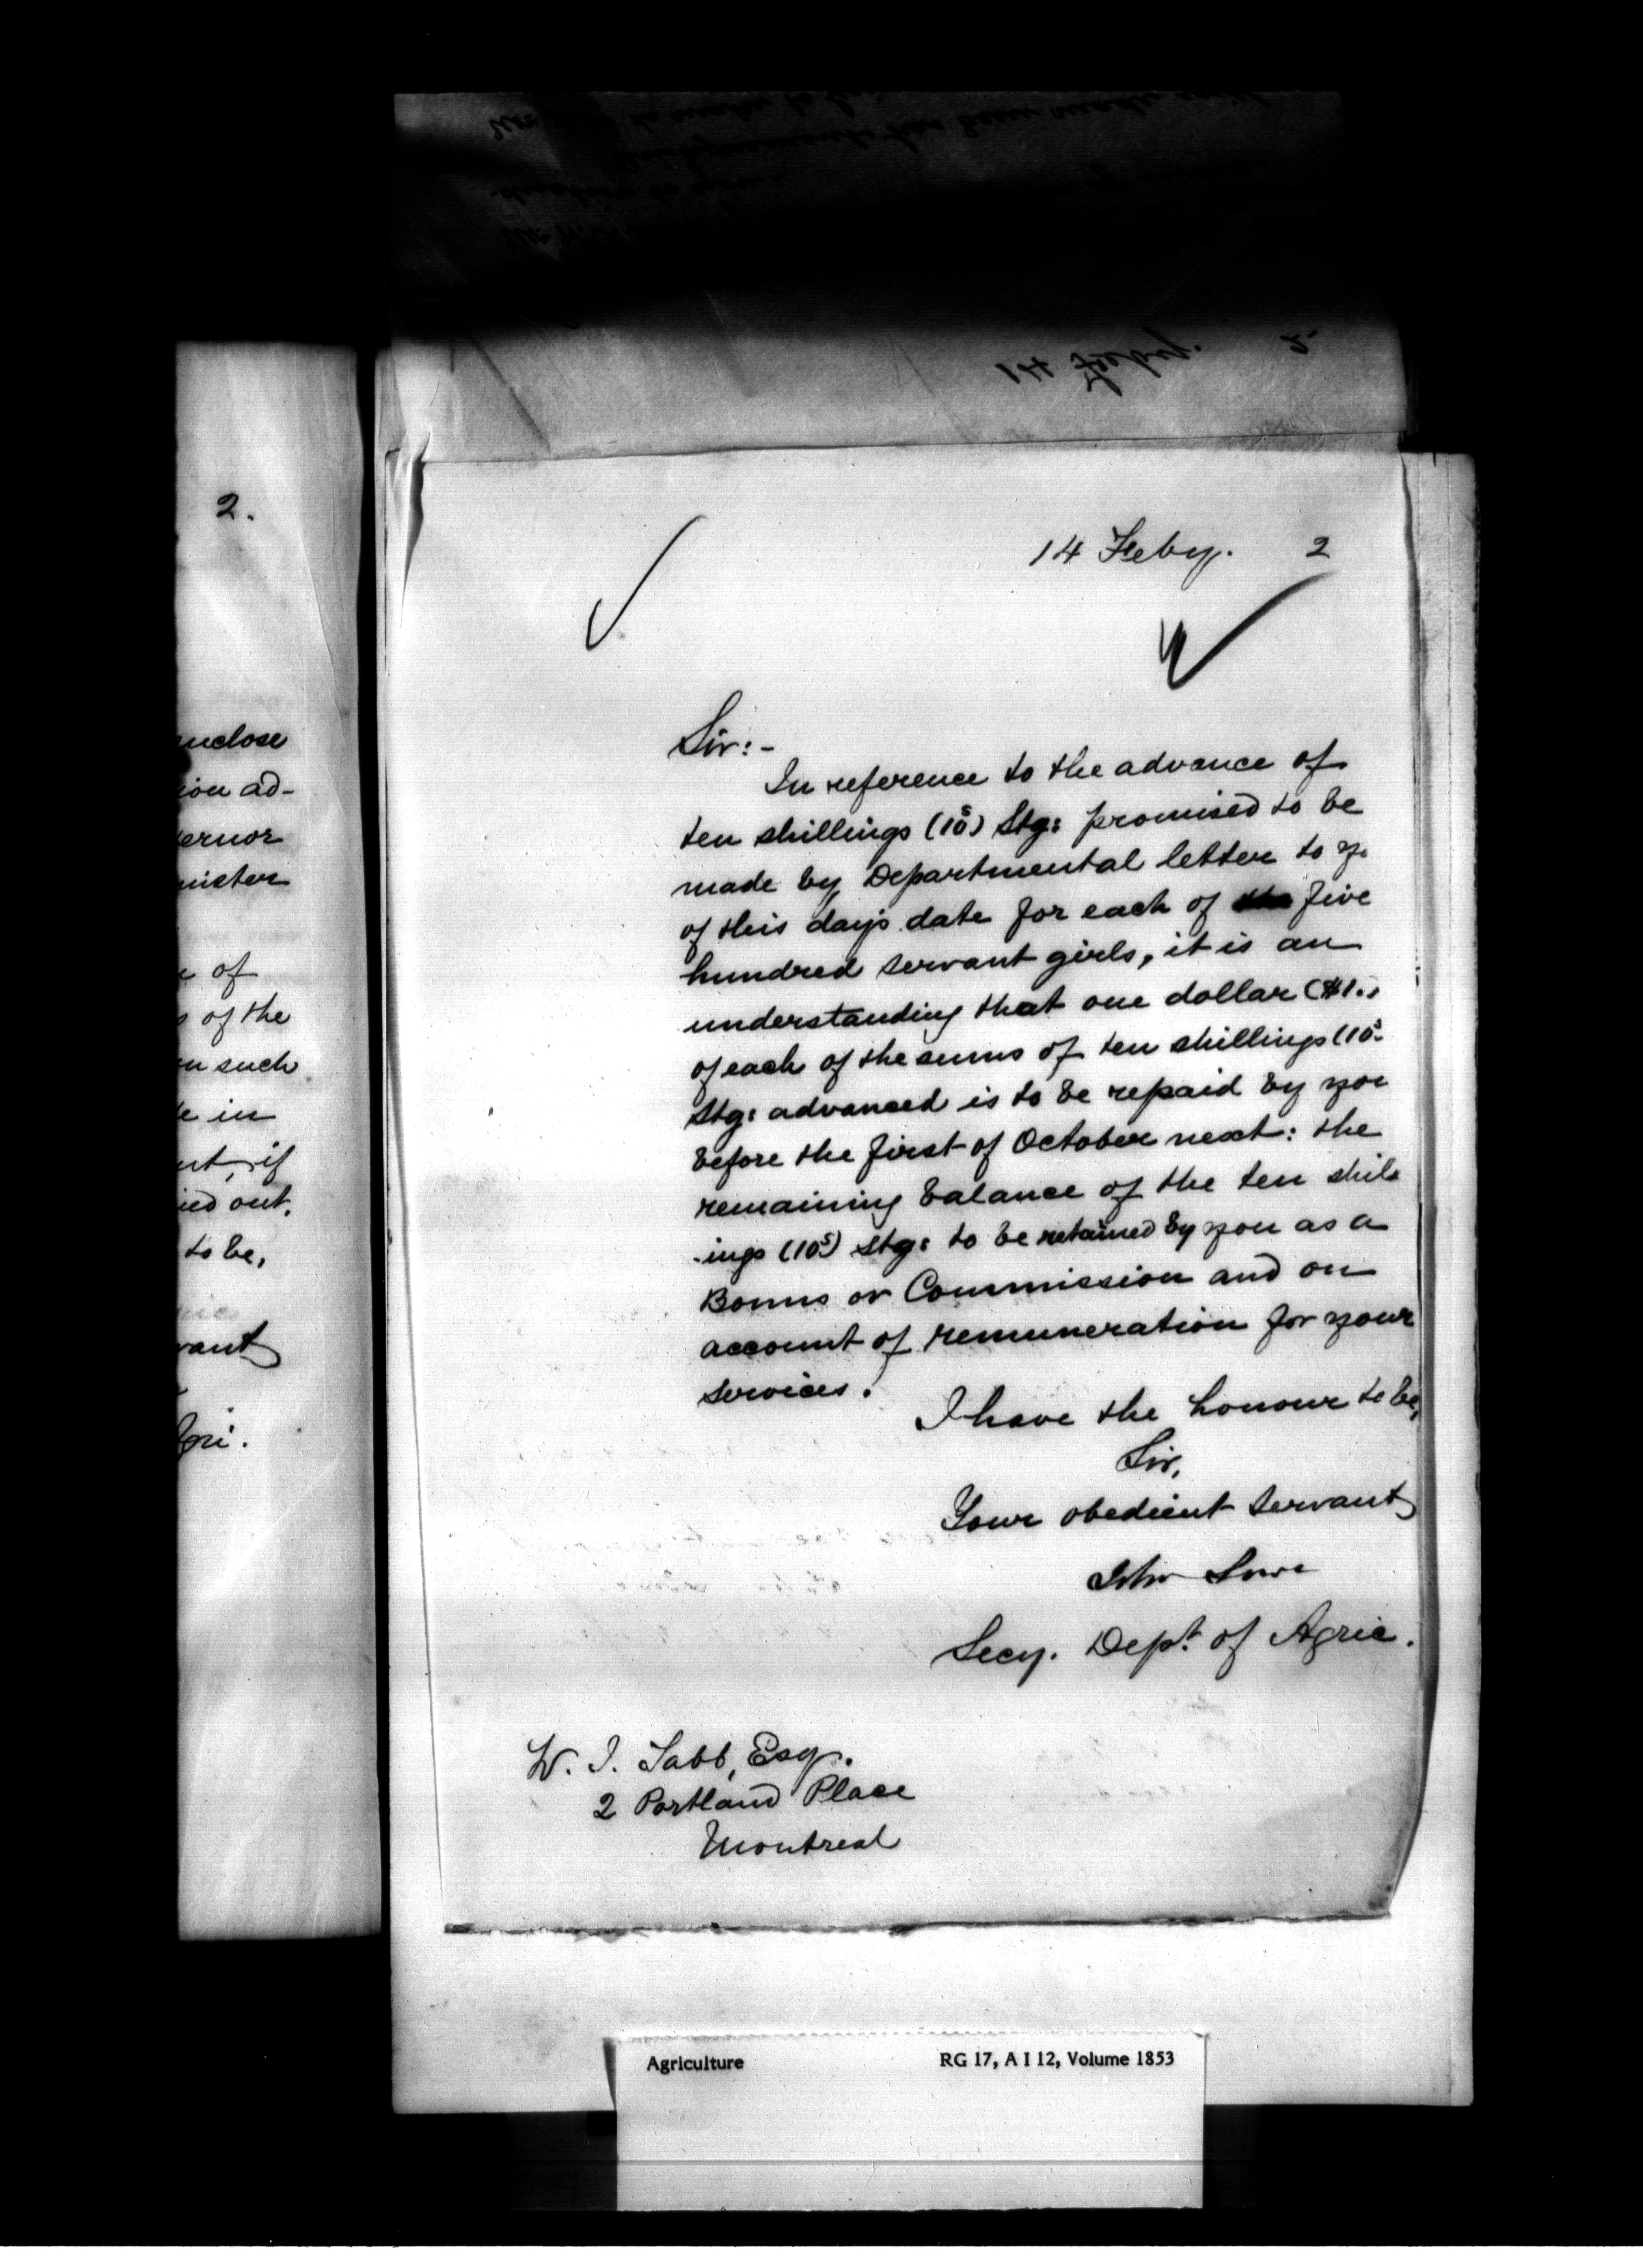 14 Feby. 2
2.
14 Feby. 2
Sir:-
In reference to the advance of
ten shillings (10s) Stg: promised to be
made by Departmental letter to yo
of this day's date for each of five
hundred servant girls, it is an
understanding that one dollar ($1.)
of each of the sums of ten shillings (10s
Stg: advanced is to be repaid by you
before the first of October next: the
remaining balance of the ten shil-
-ings (10s) Stg: to be retained by you as a
Bonus or Commission and on
account of remuneration for your
services.
I have the honour to be,
Sir,
Your obedient servant
John Lowe
Secy. Dept. of Agric.
W. J. Tabb, Esq.
2 Portland Place
Montreal
nclose
ion ad-
ernor
nister
of
of the
n such
in
nt, if
ied out.
to be,
vant
Agri.
Agriculture RG 17, A I 12, Volume 1853